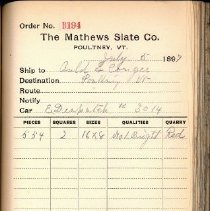 Order No. B194
The Mathews Slate Co.
POULTNEY, VT.
July 5 1897
Ship to Auld & Conger
Destination Poultney Vt
Route
Notify
Car E Despatch 3014
PIECES SQUARES SIZES QUALITIES QUARRY
554 2 16x8 Red